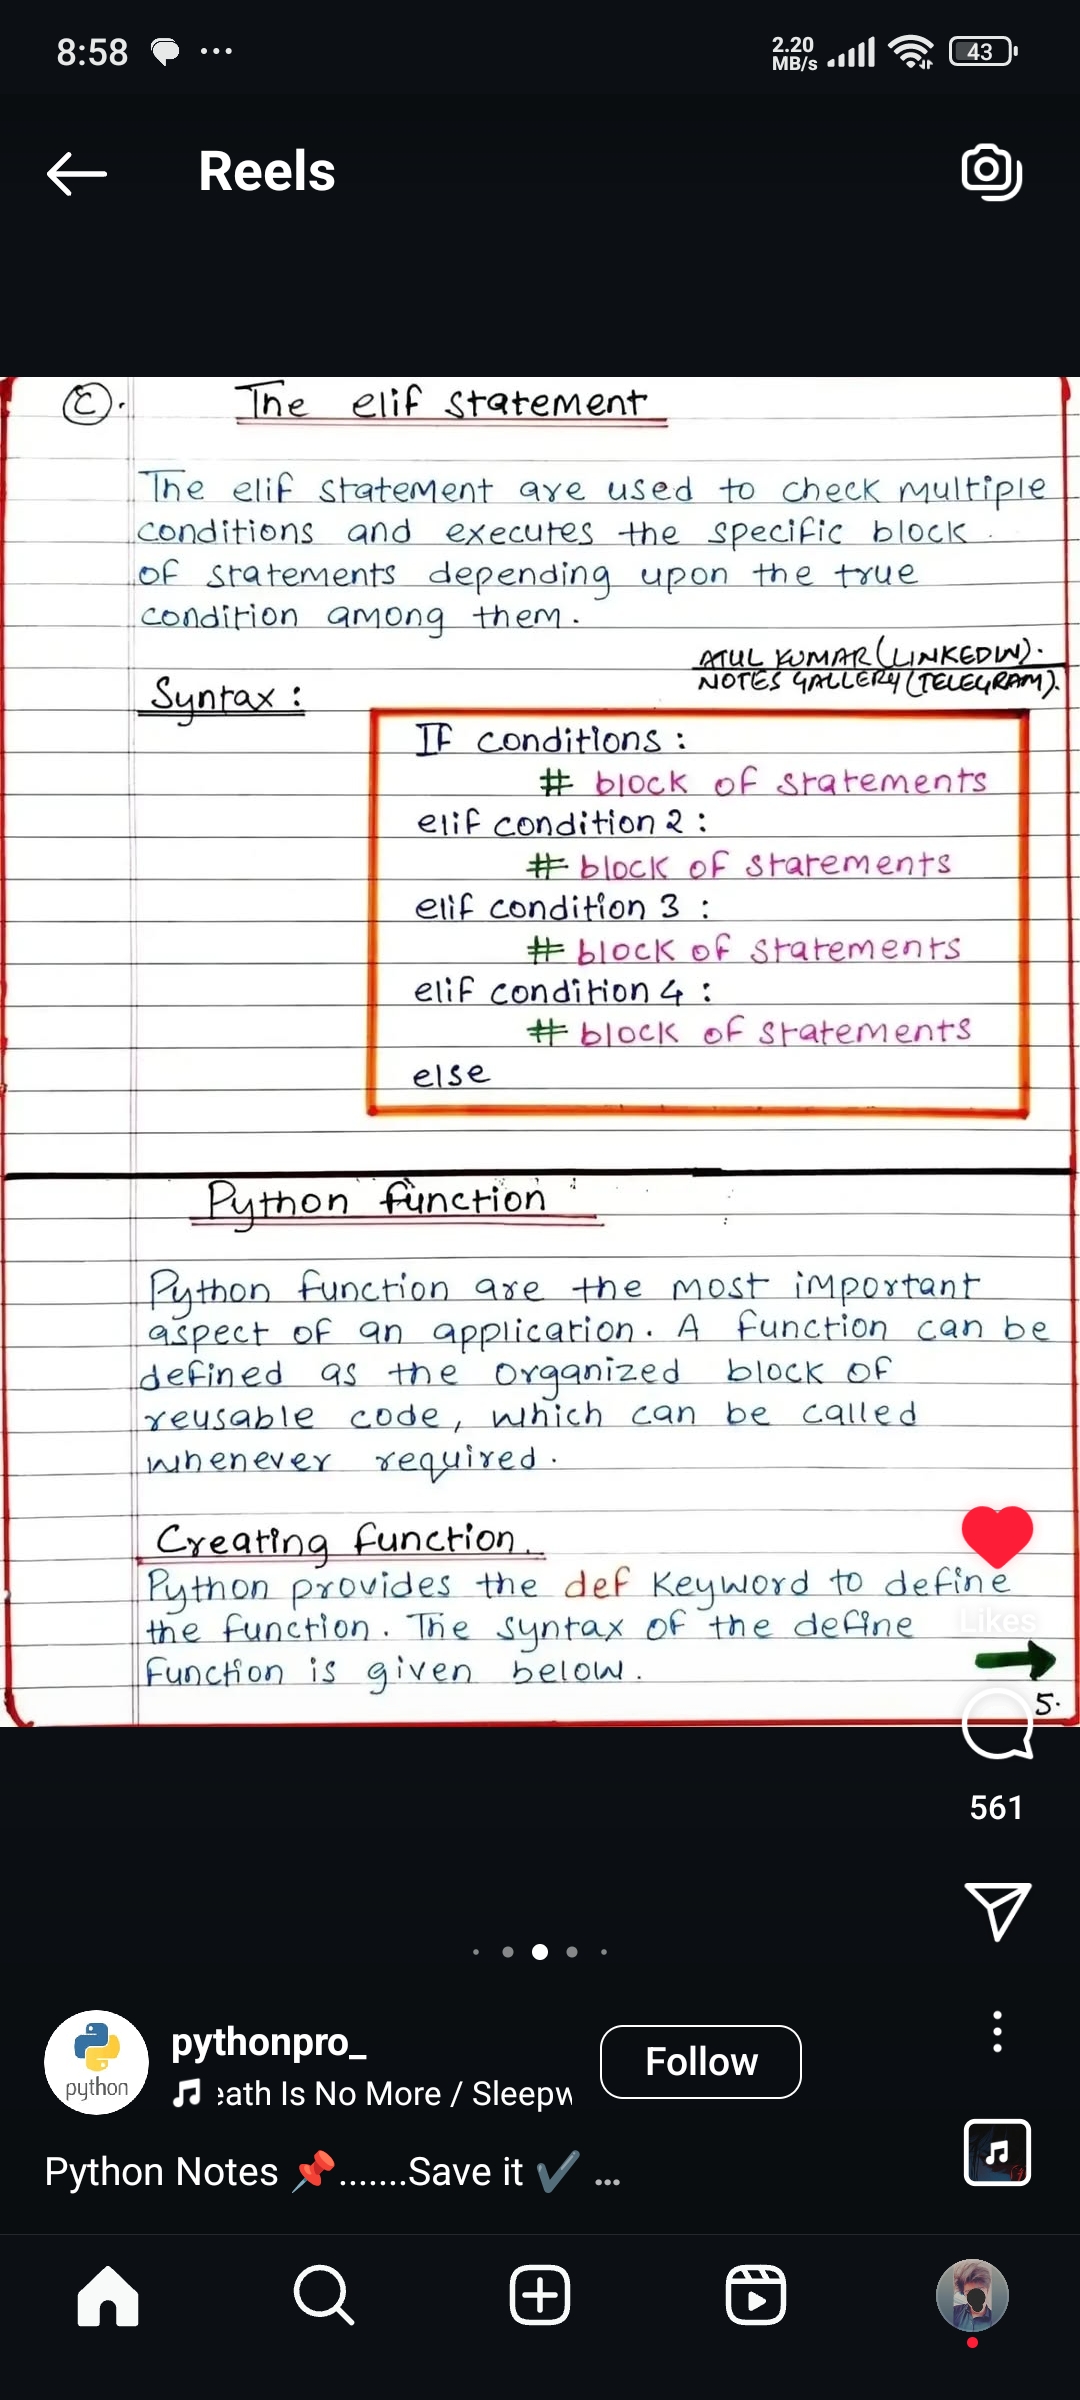 8:58
2.20
MB/s
43
Reels
C.
The elif statement
The elif statement are used to check multiple
conditions and executes the specific block
of statements depending upon the true
condition among them.
ATUL KUMAR (LINKEDIN).
NOTES GALLERY (TELEGRAM).
Syntax :
If conditions :
# block of statements
elif condition 2 :
# block of statements
elif condition 3 :
# block of statements
elif condition 4 :
# block of statements
else
Python function
Python function are the most important
aspect of an application. A function can be
defined as the organized block of
reusable code, which can be called
whenever required.
Creating function.
Python provides the def Keyword to define
the function. The syntax of the define
Likes
function is given below.
5.
561
pythonpro_
Follow
eath Is No More / Sleepw
python
Python Notes 📌.......Save it ✔️ ...